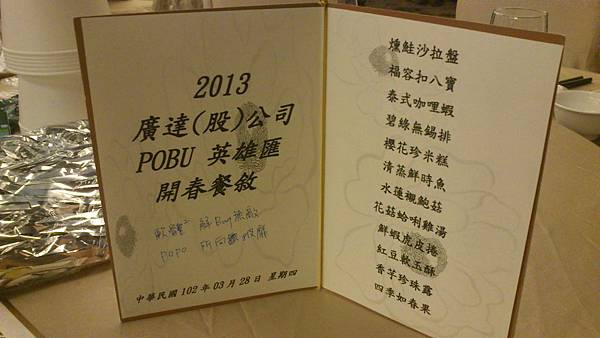 2013
廣達(股)公司
POBU 英雄匯
開春餐敘
軟體 解Bug無敵
POPO 所向披靡
中華民國 102 年 03 月 28 日 星期四
燻鮭沙拉盤
福容扣八寶
泰式咖哩蝦
碧綠無錫排
櫻花珍米糕
清蒸鮮時魚
水蓮襯鮑菇
花菇蛤唎雞湯
鮮蝦虎皮捲
紅豆軟玉酥
香芋珍珠露
四季如春果